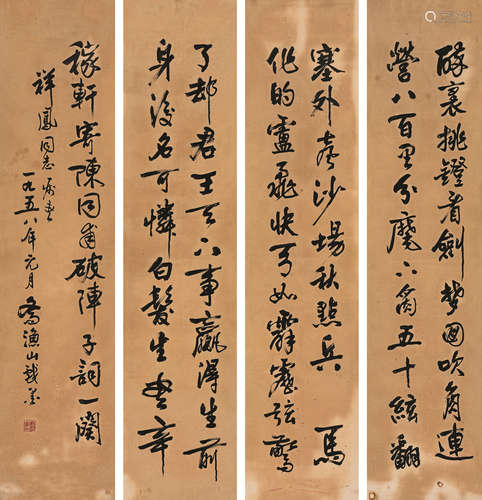 醉裏挑鐙看劍夢回吹角連
營八百里分麾下炙五十絃翻
塞外聲沙場秋點兵 馬
作的盧飛快弓如霹靂弦驚
了却君王天下事贏得生前
身後名可憐白髮生 書辛
稼軒寄陳同甫破陣子詞一闋
祥鳳同志屬書
一九五八年元月 漁山